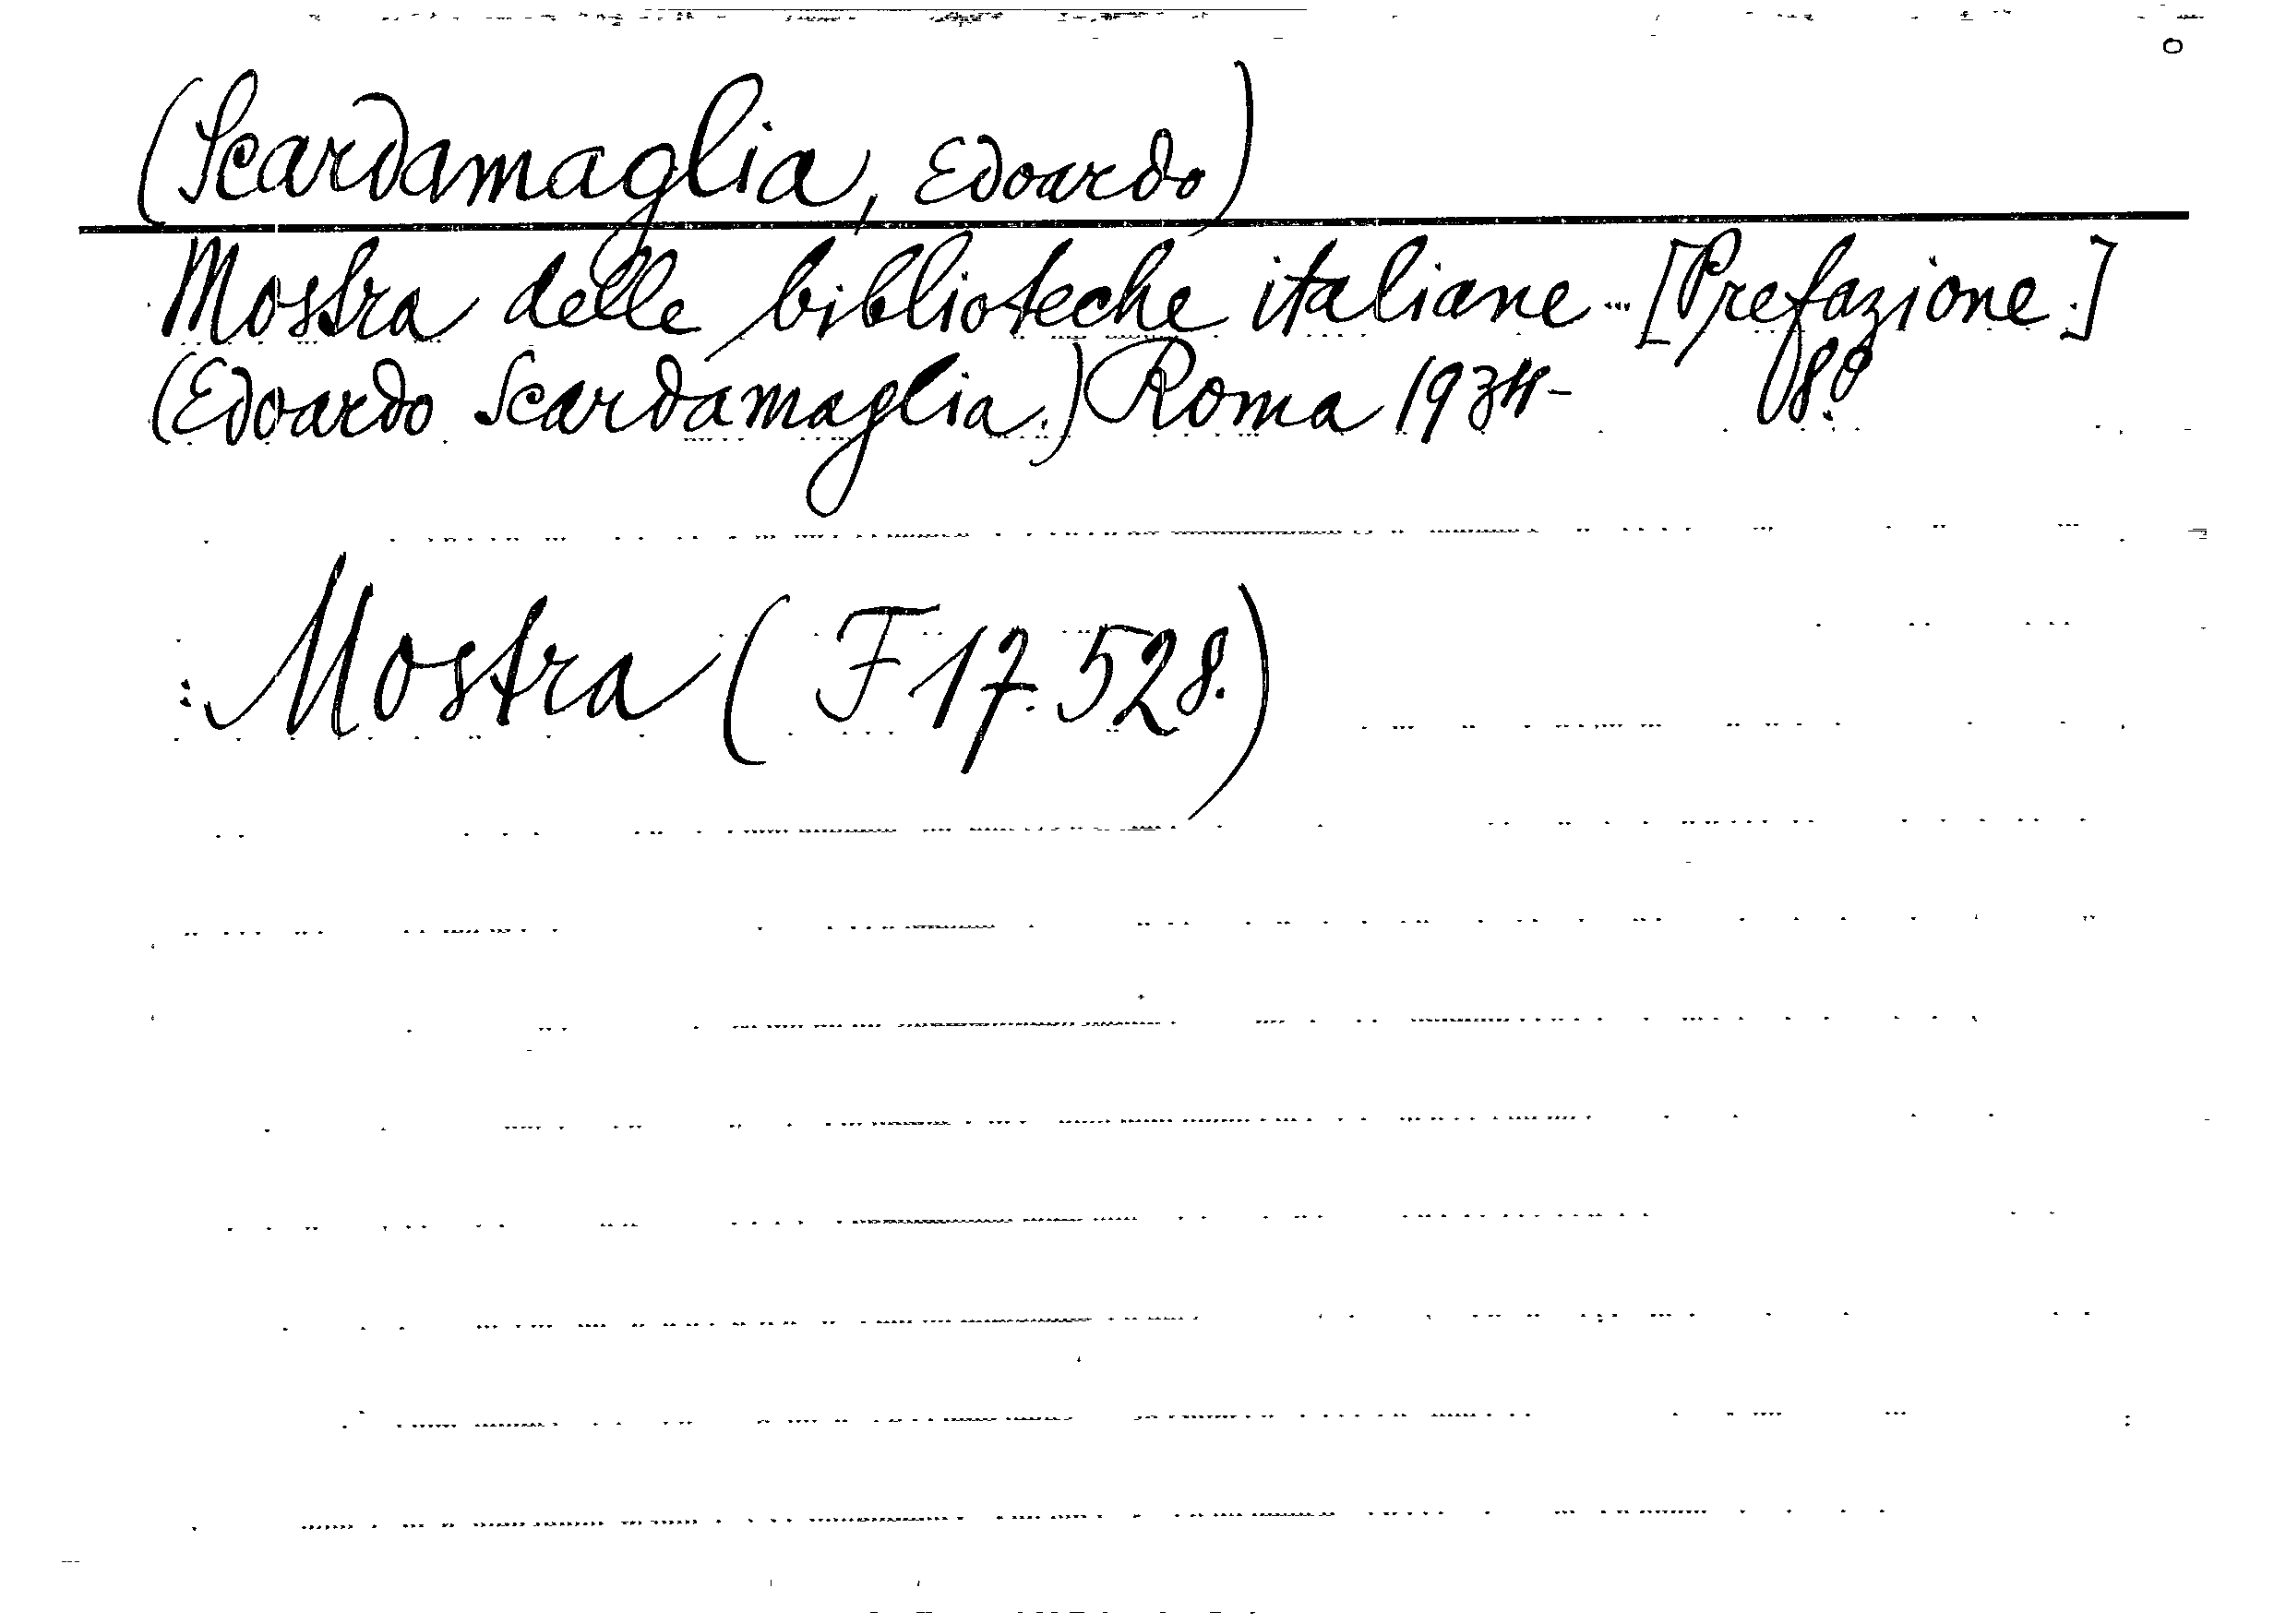 (Scardamaglia, Edoardo)
Mostra delle biblioteche italiane ... [Prefazione.]
(Edoardo Scardamaglia.) Roma 1934- 8º
: Mostra (F 17. 528.)